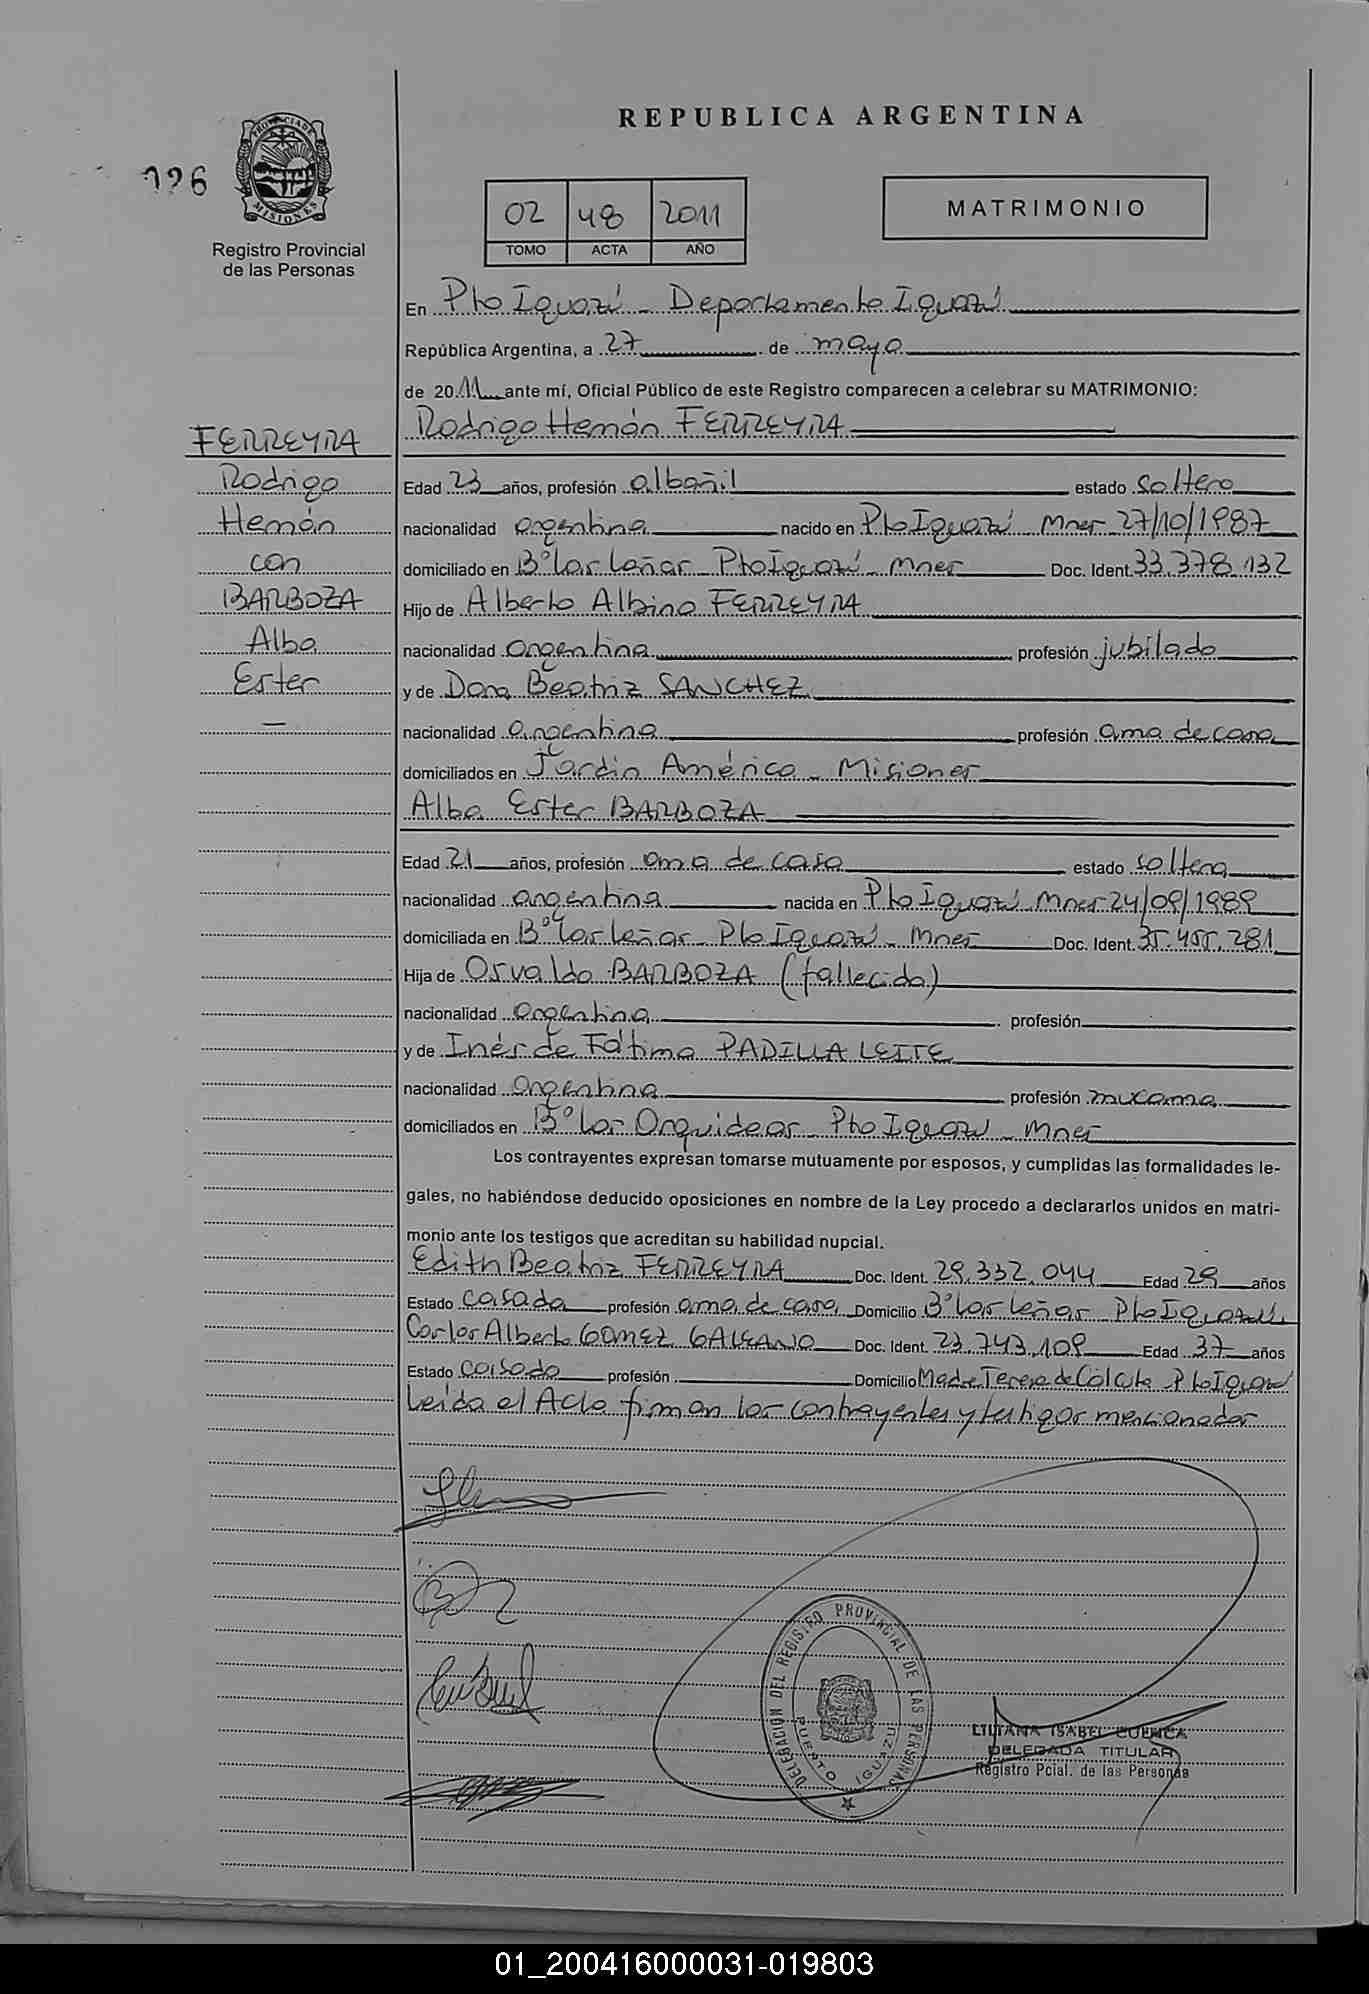 REPUBLICA ARGENTINA
026
PROVINCIA DE MISIONES
Registro Provincial
de las Personas
02 48 2011
TOMO ACTA AÑO
MATRIMONIO
En Pto Iguazú - Departamento Iguazú
República Argentina, a 27 de mayo
de 2011 ante mí, Oficial Público de este Registro comparecen a celebrar su MATRIMONIO:
Rodrigo Hernán FERREYRA
FERREYRA
Rodrigo
Hernán
con
BARBOZA
Alba
Ester
—
Edad 23 años, profesión albañil estado soltero
nacionalidad argentina nacido en Pto Iguazú Mnes 27/10/1987
domiciliado en B° Las Leñas - Pto Iguazú - Mnes Doc. Ident. 33.378.132
Hijo de Alberto Albino FERREYRA
nacionalidad argentina profesión jubilado
y de Dora Beatriz SANCHEZ
nacionalidad argentina profesión ama de casa
domiciliados en Jardín América - Misiones
Alba Ester BARBOZA
Edad 21 años, profesión ama de casa estado soltera
nacionalidad argentina nacida en Pto Iguazú Mnes 24/09/1989
domiciliada en B° Las Leñas - Pto Iguazú - Mnes Doc. Ident. 35.455.281
Hija de Osvaldo BARBOZA (fallecido)
nacionalidad argentina profesión
y de Inés de Fátima PADILLA LEITE
nacionalidad argentina profesión mucama
domiciliados en B° Las Orquideas - Pto Iguazú - Mnes
Los contrayentes expresan tomarse mutuamente por esposos, y cumplidas las formalidades le-
gales, no habiéndose deducido oposiciones en nombre de la Ley procedo a declararlos unidos en matri-
monio ante los testigos que acreditan su habilidad nupcial.
Edith Beatriz FERREYRA Doc. Ident. 29.332.044 Edad 29 años
Estado casada profesión ama de casa Domicilio B° Las Leñas - Pto Iguazú
Carlos Alberto GOMEZ GALEANO Doc. Ident. 23.743.109 Edad 37 años
Estado casado profesión Domicilio Madre Teresa de Calcuta - Pto Iguazú
Leída el Acta firman los contrayentes y testigos mencionados
DELEGACION DEL REGISTRO PROVINCIAL DE LAS PERSONAS
PUERTO IGUAZU
LILIANA ISABEL CUENCA
DELEGADA TITULAR
Registro Pcial. de las Personas
01_200416000031-019803